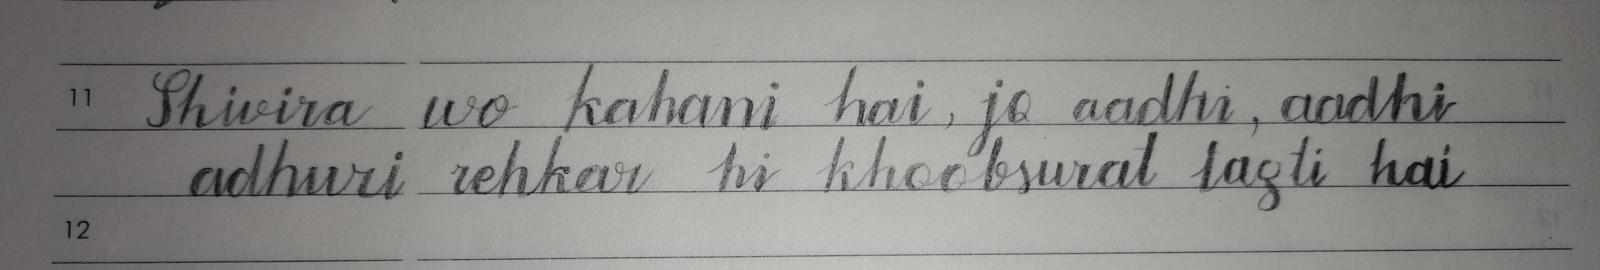 11 Shivira wo kahani hai, jo aadhi, aadhi
adhuri rehkar hi khoobsurat lagti hai
12